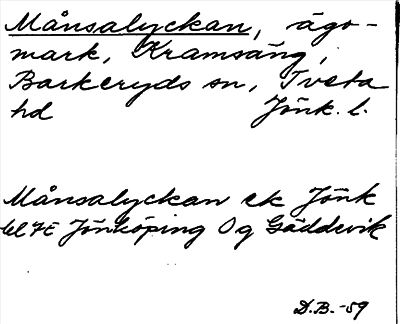 Månsalyckan, ägo-
mark, Kramsäng,
Barkeryds sn, Tveta
hd Jönk. l.
Månsalyckan ek Jönk
bl 7E Jönköping Og Gäddevik
D.B.-59